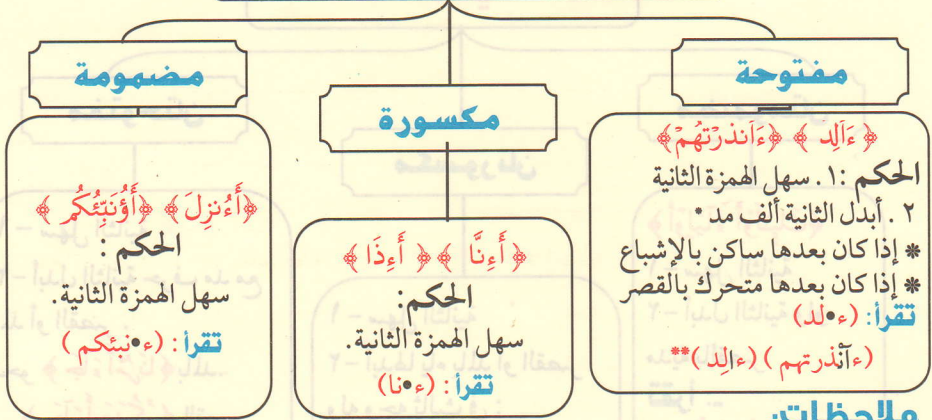 مفتوحة
﴿ ءَأَلِد ﴾ ﴿ءَاَنذَرْتَهُمْ﴾
الحكم :١. سهل الهمزة الثانية
٢ . أبدل الثانية ألف مد *
* إذا كان بعدها ساكن بالإشباع
* إذا كان بعدها متحرك بالقصر
تقرأ: (ء•لد)
(ءآنْذرتهم )(ءالِد)**
مكسورة
﴿ أَءِنَّا ﴾﴿ أَءِذَا ﴾
الحكم:
سهل الهمزة الثانية.
تقرأ: (ء•نا)
مضمومة
﴿أَءُنزِلَ﴾ ﴿أَؤُنَبِّئُكُم ﴾
الحكم :
سهل الهمزة الثانية.
تقرأ: (ء•نبئكم )
ملاحظات: